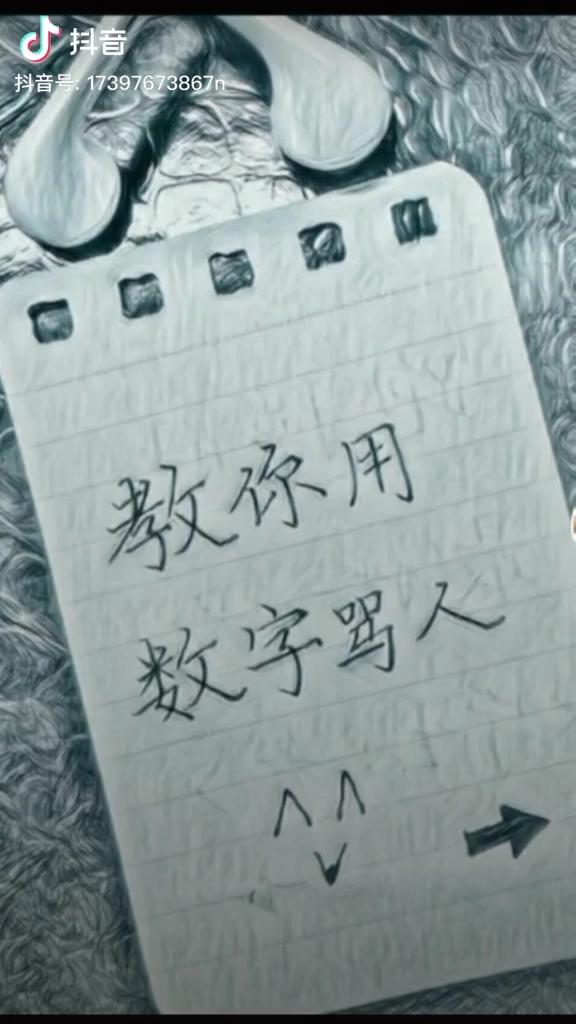 抖音
抖音号: 17397673867n
教你用
数字骂人